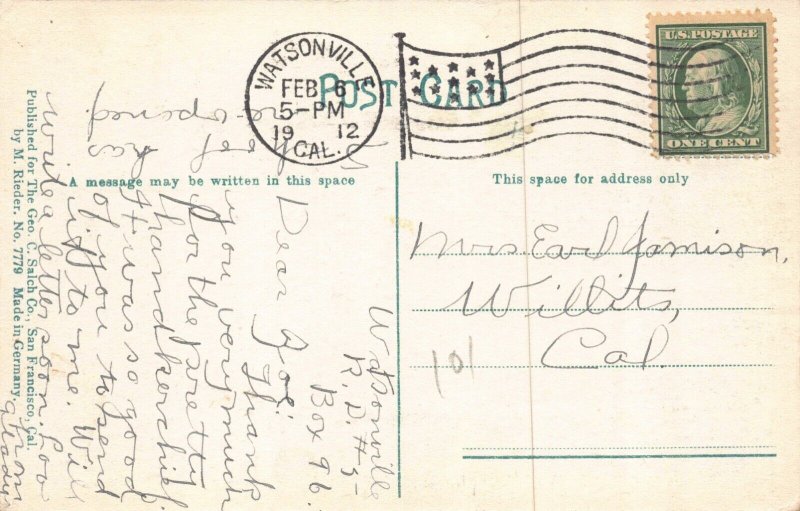 WATSONVILLE
FEB 6
5-PM
19 12
CAL.
POST CARD
U.S. POSTAGE
ONE CENT
A message may be written in this space
This space for address only
Mrs Earl Jamison,
Willits,
Cal.
101
Watsonville
R. D. #3-
Box 96.
Dear Zoe:
Thank
you very much
for the pretty
handkerchief.
It was so good
of you to send
it to me. Will
write a letter soon.
from
Gladys
has
re-opened
Published for The Geo. C. Salch Co., San Francisco, Cal.
by M. Rieder. No. 7779 Made in Germany.